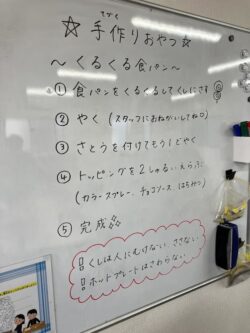 ☆ 手作りおやつ ☆
てづく
～くるくる食パン～
① 食パンをくるくるしてくしにさす
② やく (スタッフにおねがいしてね♡)
③ さとうを付けてもう1どやく
④ トッピングを2しゅるいえらぶ
(カラースプレー、チョコソース、はちみつ)
⑤ 完成
!! くしは人にむけない ささない
!! ホットプレートはさわらない